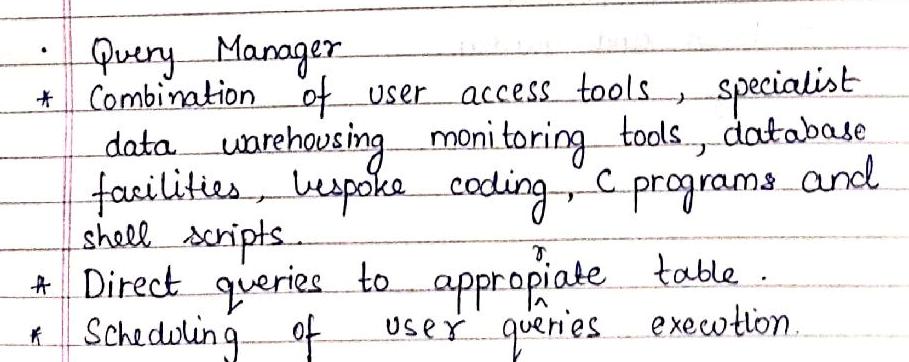 · Query Manager
* Combination of user access tools, specialist
data warehousing monitoring tools, database
facilities, bespoke coding, C programs and
shell scripts.
* Direct queries to appropriate table.
* Scheduling of user queries execution.